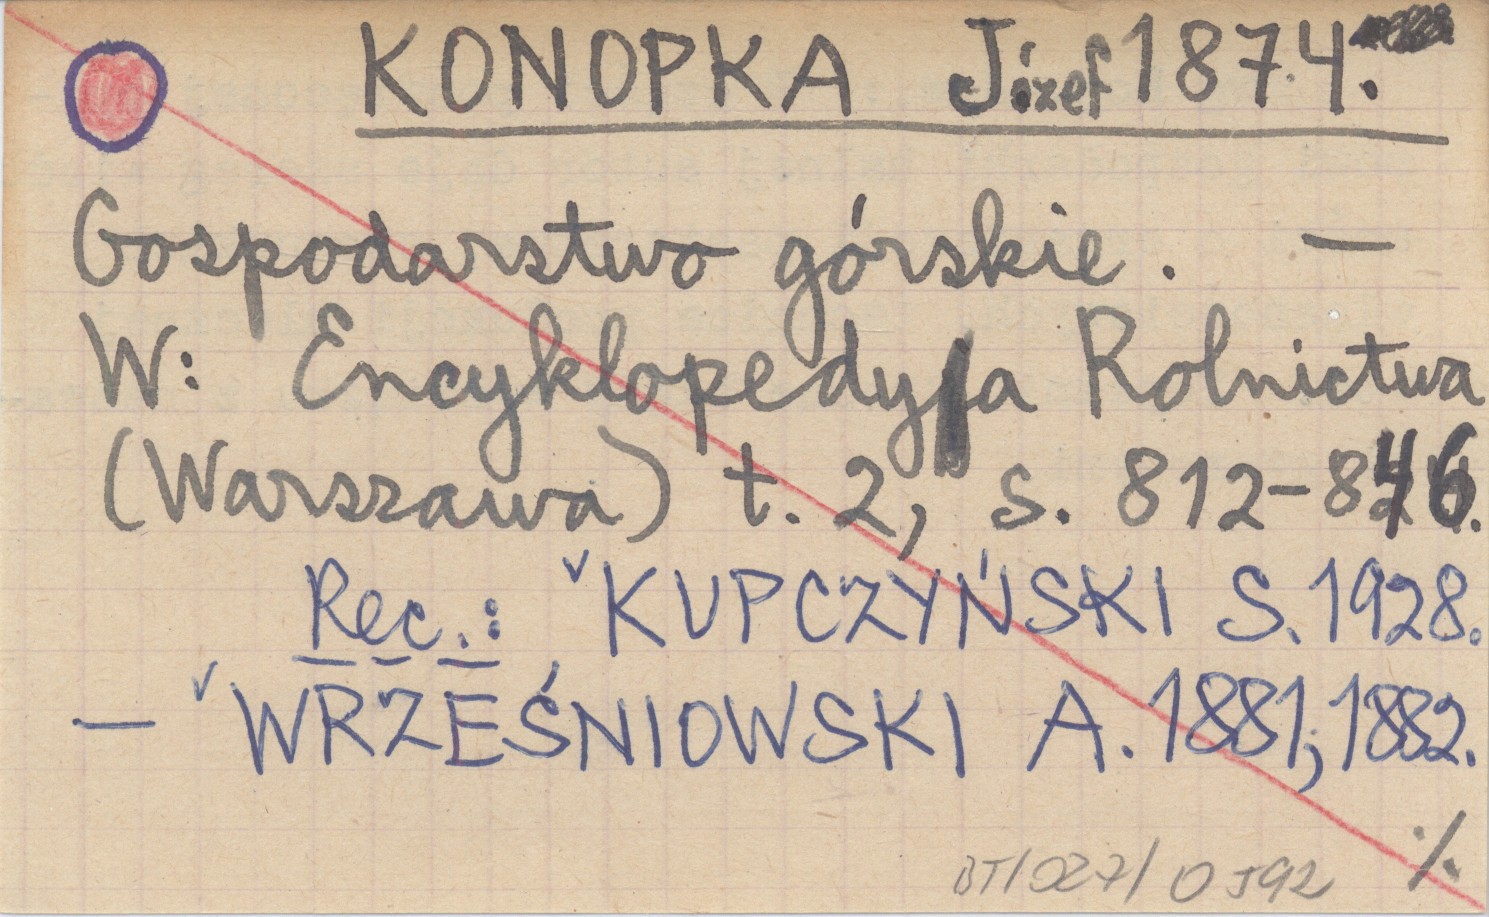 KONOPKA Józef 1874.
Gospodarstwo górskie. —
W: Encyklopedyja Rolnictwa
(Warszawa) t. 2, s. 812-846.
Rec.: ˇKUPCZYŃSKI S. 1928.
— ˇWRZEŚNIOWSKI A. 1881, 1882.
./.
BT/027/